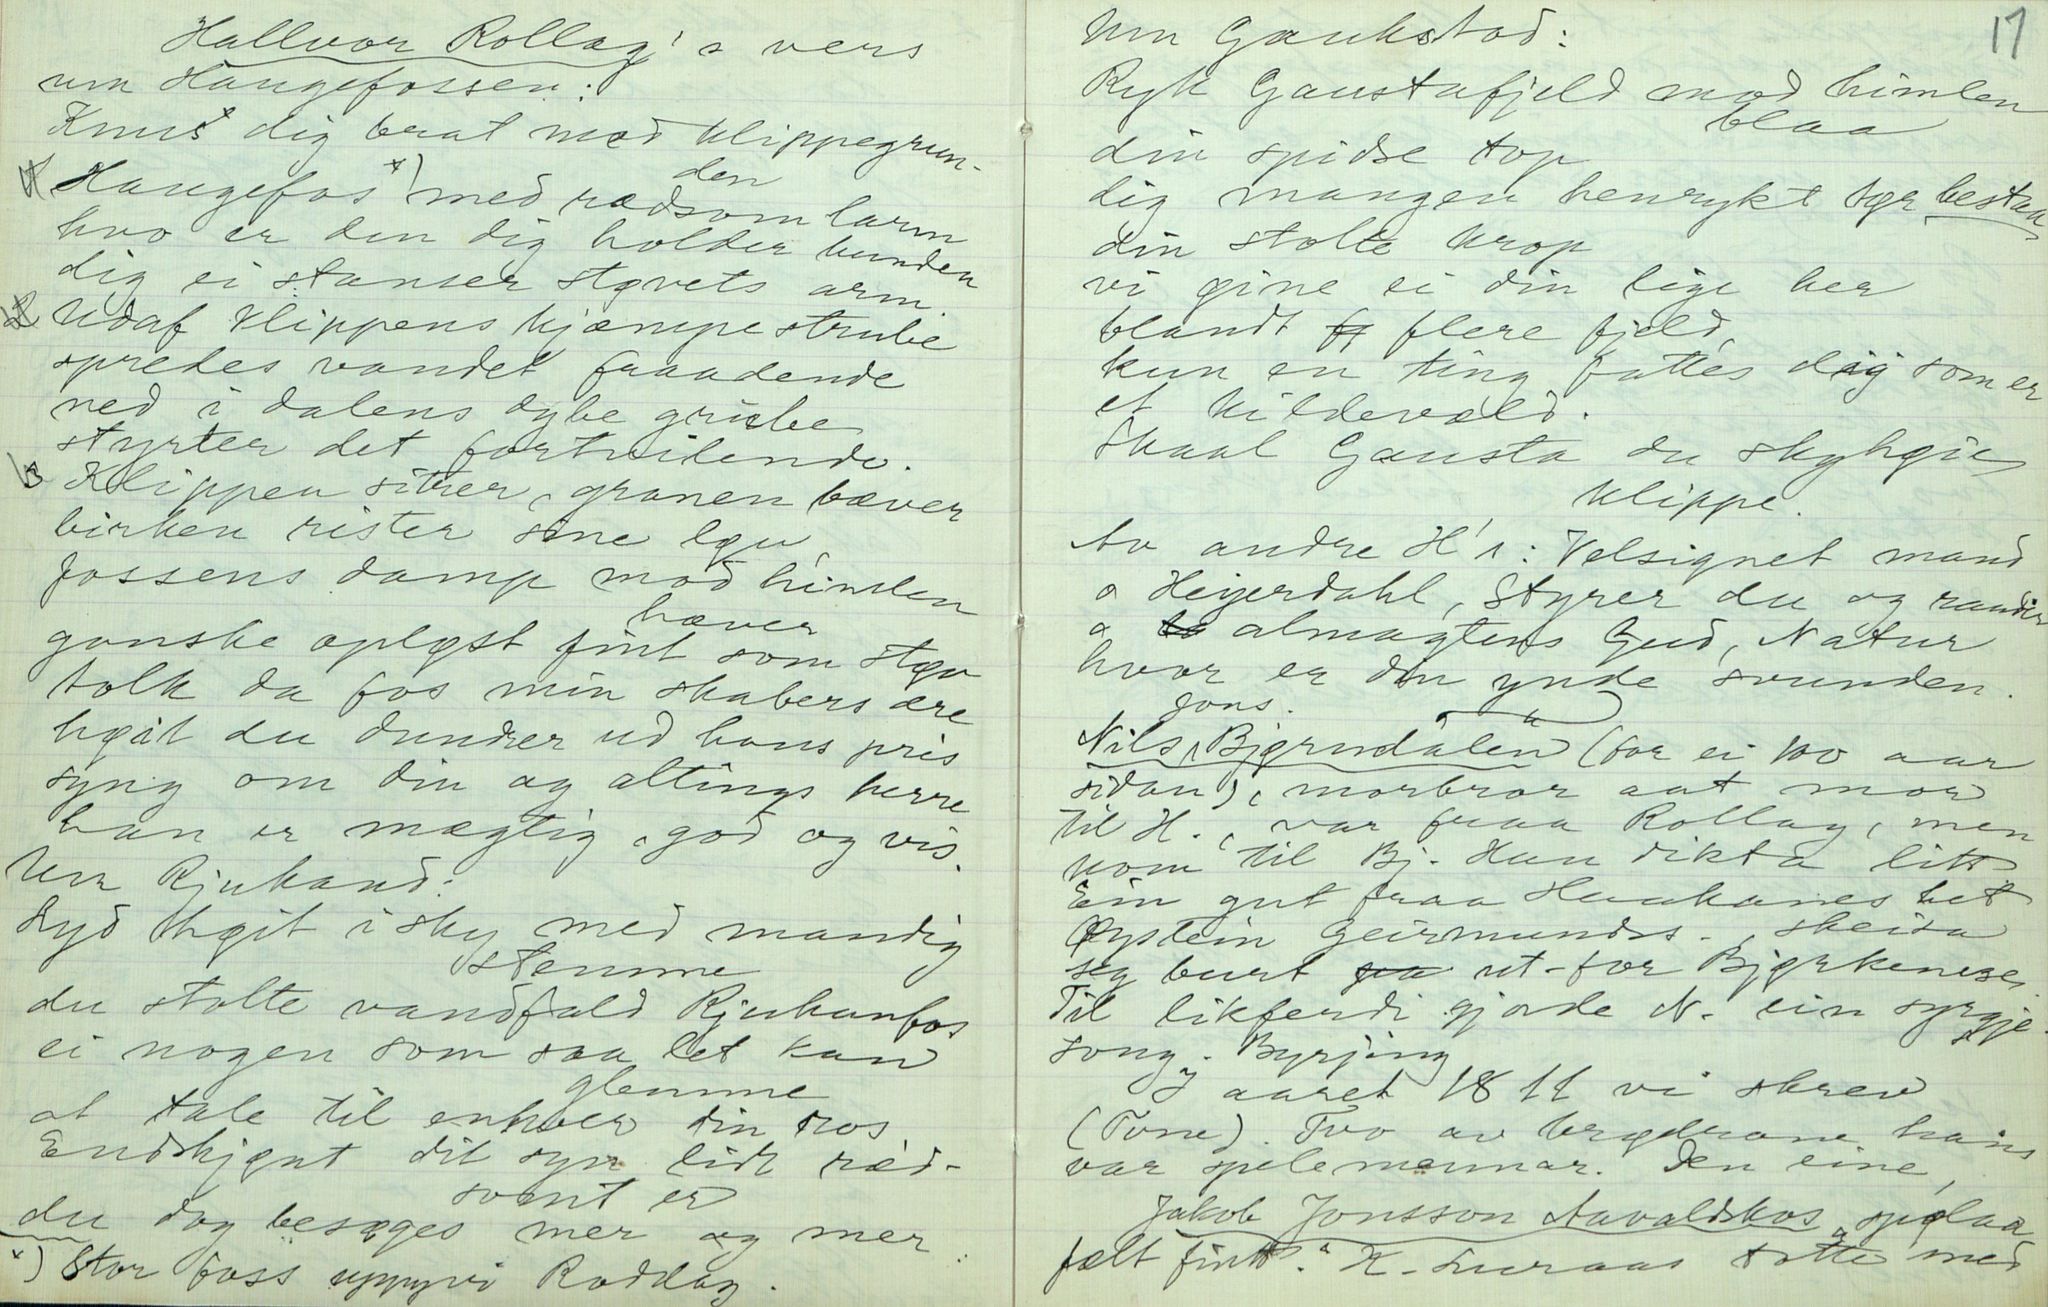 Hallvor Rollag's vers
um Haugefossen:
Knus dig brat mod klippegrun-
den
1 Haugefos x) med rædsom larm
hvo er den dig holder bunden
dig ei stanser støvets arm
2 Udaf klippens kjæmpe strube
spredes vandet fraadende
ned i dalens dybe grube
styrter det fortvilende.
3 Klippen sitrer, granen bæver
birken rister sine løv,
fossens damp mod himlen
hæver
ganske opløst fint som støv
tolk da fos min skabers ære
høit du dundrer ud hans pris
syng om din og altings herre
han er mægtig, god og vis.
Um Rjukand:
Lyd høit i sky med mandig
stemme
du stolte vandfald Rjukanfos
ei nogen som saa let kan
glemme
at tale til enhver din ros
Endskjønt dit syn lidt ræd-
somt er
du dog besøges mer og mer
x) Stor foss uppyvi Roddag.
17
Um Gaukstad:
Ryk Gaustafjeld mod himlen
blaa
din spidse top
dig mangen henrykt tør bestaa
din stolte krop
vi gine ei din lige her
blandt flere fjeld,
kun en ting fattes dig som er
et kildevæld.
Skaal Gausta du skyhøie
klippe.
Av andre H's: Velsignet mand
o Heyerdahl, Styrer du og
o almagtens Gud, Natur
hvor er din ynde svunden.
Jons.
Nils Bjørndalen (for ei 100 aar
sidan), morbror aat mor
til H., var fraa Rollag, men
kom til Bj. Han dikta litt
Ein gut fraa Haukanes het
Øystein Geirmunds-, skeisa
seg burt ut-for Bjørkenese.
Til likferdi gjorde N. ein syrgje-
song. Byrjing
I aaret 1811 vi skrev
(Tone). Tvo av brødrane hains
var spelemennar. Den eine,
Jakob Jonsson Aavaldskos "spelaa
fælt fint." K. Luraas totte med